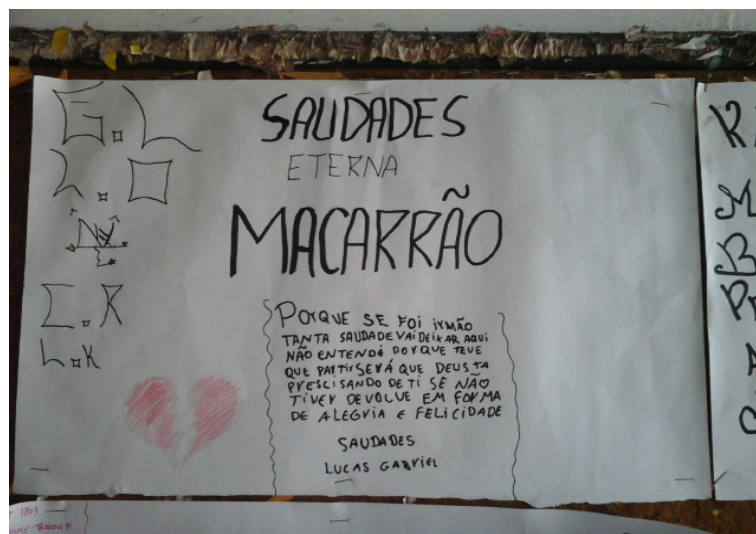 SAUDADES
ETERNA
MACARRÃO
PORQUE SE FOI IRMÃO
TANTA SAUDADE VAI DEIXAR AQUI
NÃO ENTENDÉ PORQUE TEVE
QUE PARTIR SERÁ QUE DEUS TA
PRESCISANDO DE TI SE NÃO
TIVER DEVOLVE EM FORMA
DE ALEGRIA E FELICIDADE
SAUDADES
LUCAS GABRIEL
L.K